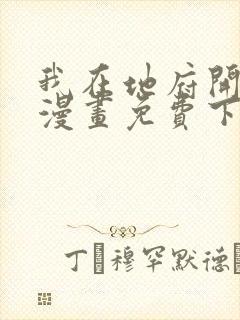 我在地府開
漫畫免費下
丁 穆罕默德